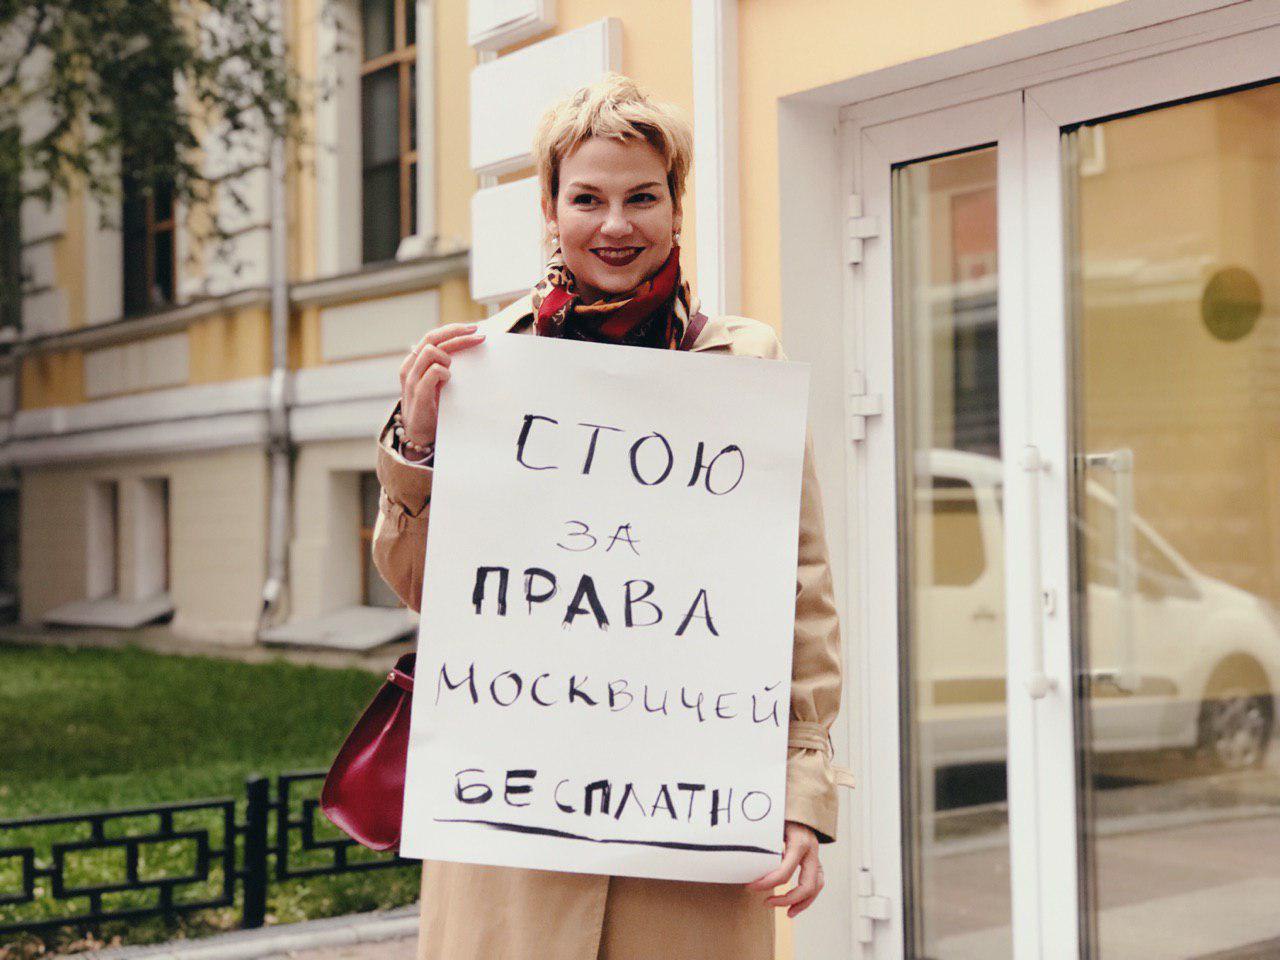 СТОЮ
ЗА
ПРАВА
МОСКВИЧЕЙ
БЕСПЛАТНО